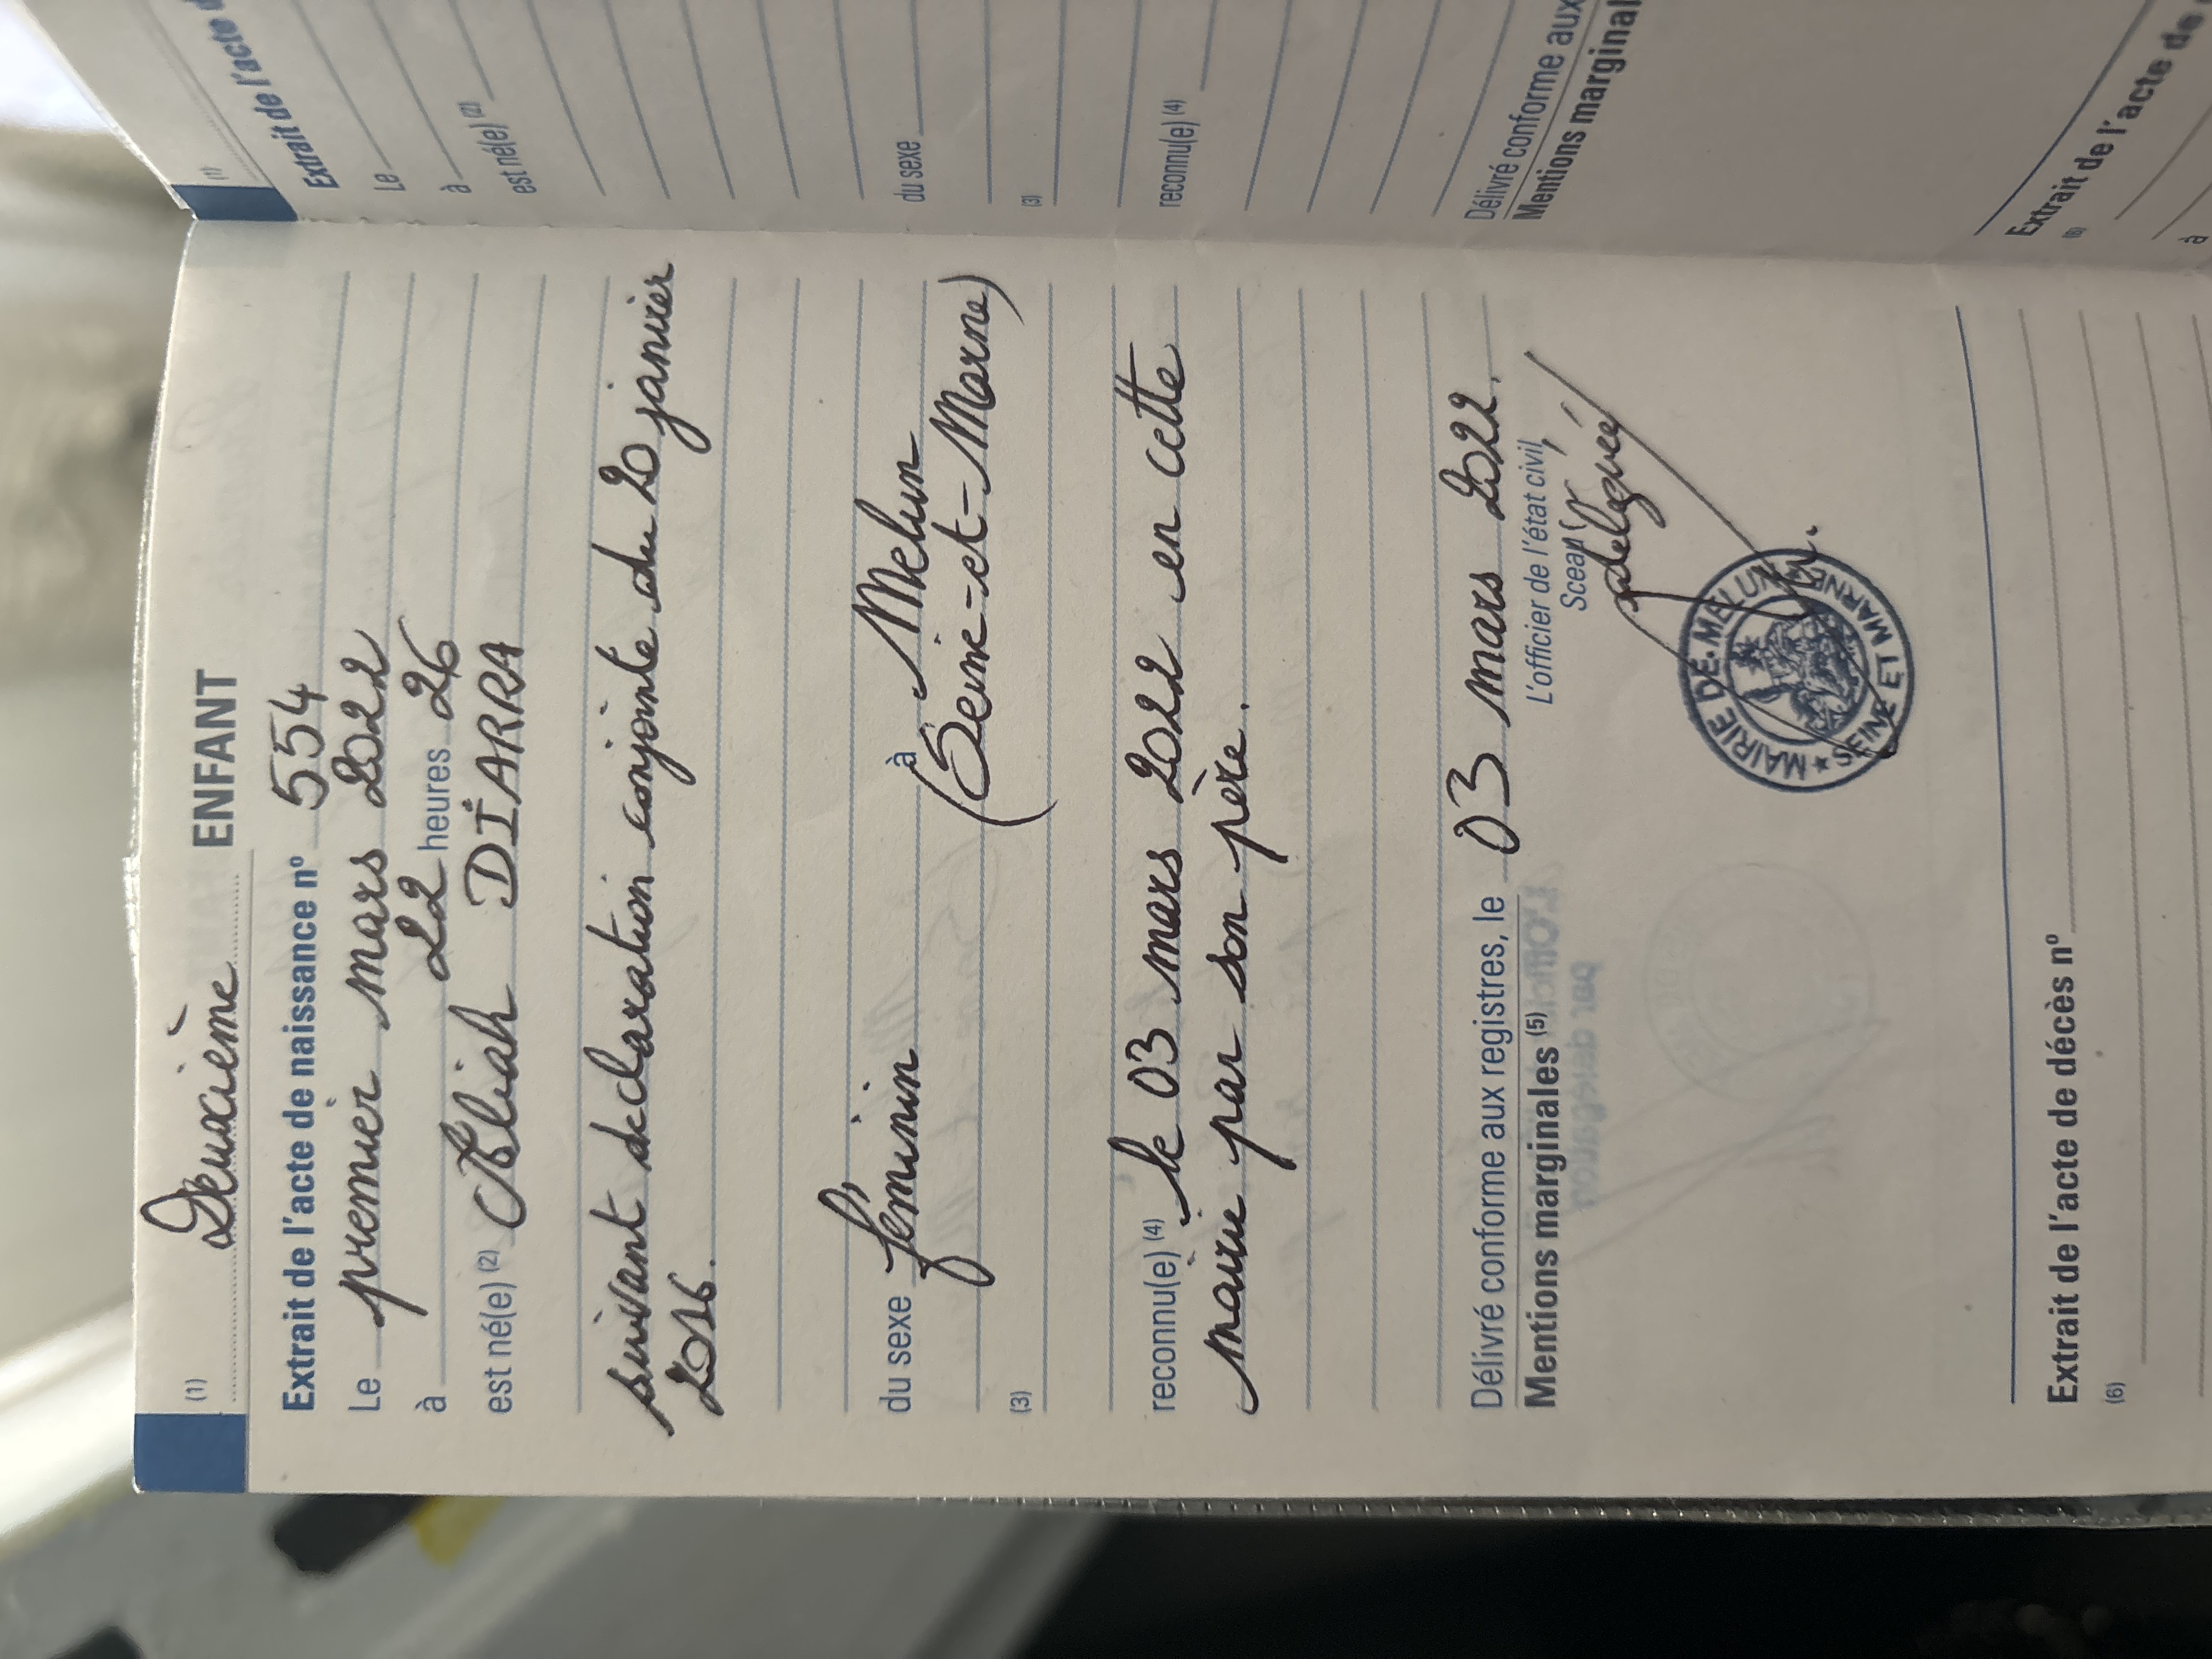 Deuxième ENFANT
(1)
Extrait de l'acte de naissance nº 554
Le premier mars 2022
à 22 heures 26
est né(e) (2) Aliah DIARRA
suivant déclaration conjointe du 20 janvier
2016.
du sexe féminin à Melun
(Seine-et-Marne)
(3)
reconnu(e) (4) le 03 mars 2022 en cette
mairie par son père.
Délivré conforme aux registres, le 03 mars 2022.
Mentions marginales (5) L'officier de l'état civil,
Sceau
déléguée
MAIRIE DE MELUN
★ SEINE ET MARNE
Extrait de l'acte de décès nº
(6)
(1)
Extrait de l'acte d
Le
à
est né(e) (2)
du sexe
(3)
reconnu(e) (4)
Délivré conforme aux
Mentions marginal
Extrait de l'acte de d
(6)
à